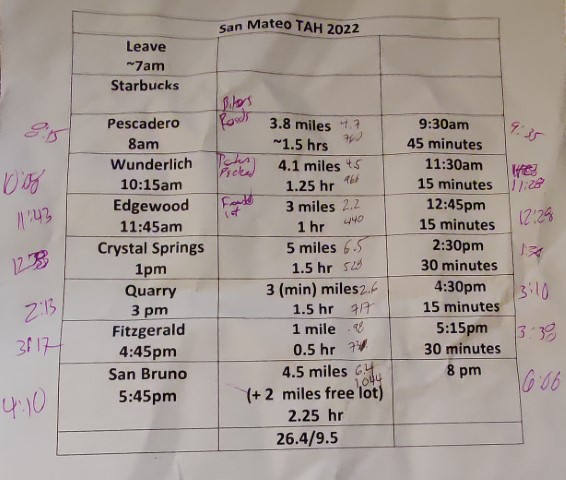 San Mateo TAH 2022
Leave
~7am
Starbucks
8:15 Pescadero Roads 3.8 miles 4.7 9:30am 9:35
8am ~1.5 hrs 45 minutes
Wunderlich 4.1 miles 4.5 11:30am
10:08 10:15am 1.25 hr 15 minutes 11:28
11:43 Edgewood 3 miles 2.2 12:45pm 12:28
11:45am lot 1 hr 440 15 minutes
Crystal Springs 5 miles 6.5 2:30pm
1pm 1.5 hr 30 minutes
Quarry 3 (min) miles 2.6 4:30pm 3:10
2:13 3 pm 1.5 hr 717 15 minutes
Fitzgerald 1 mile .98 5:15pm 3:38
3:17 4:45pm 0.5 hr 30 minutes
San Bruno 4.5 miles 6.4 8 pm 6:06
4:10 5:45pm (+ 2 miles free lot) 1,044
2.25 hr
26.4/9.5